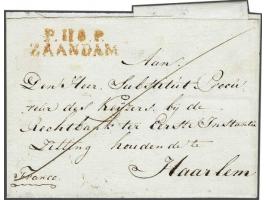 P.118.P.
ZAANDAM
Aan
Den Heer Substituut Procu
reur des Keyzers, bij de
Rechtbank ter Eerste Instantie
Zitting houdende te
Haarlem
Franco